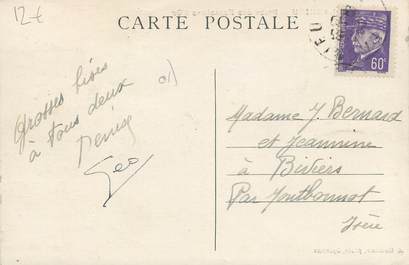 12€
CARTE POSTALE
01)
60c
Grosses bises
à tous deux
Denise
Geo
Madame J. Bernard
et Jeannine
à Biviers
Par Montbonnot
Isère